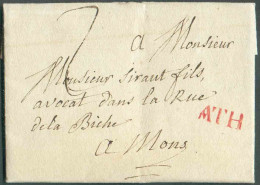 2
a Monsieur
Monsieur Siraut fils,
avocat dans la Rue
de la Biche
ATH
a Mons